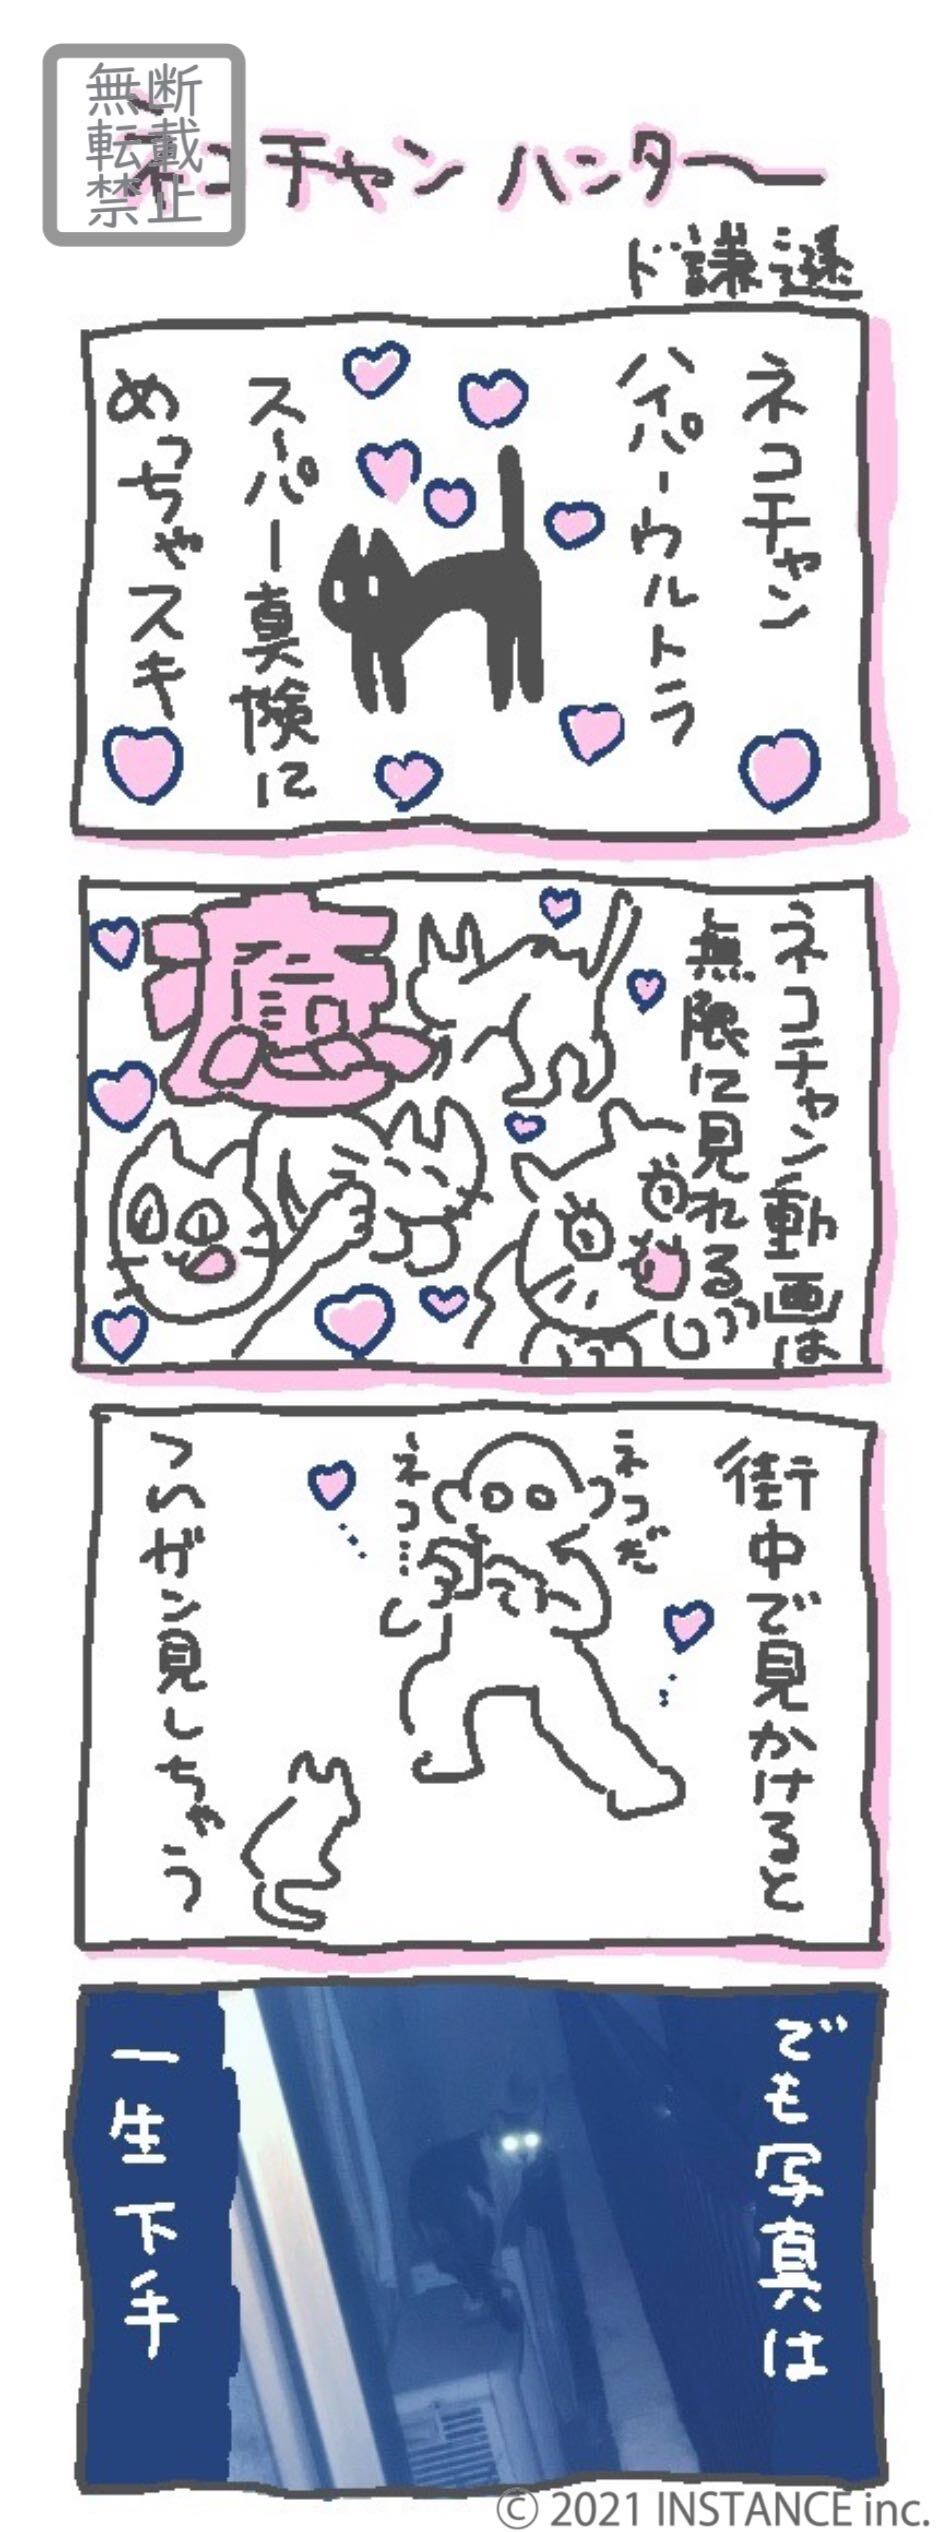 無断
転載
禁止
ネコチャンハンター
ド謙遜
ネコチャン
ハイパーウルトラ
スーパー真険に
めっちゃスキ
ネコチャン動画は
無限に見れるっ
癒
街中で見かけると
ネコだ
ネコ…
ついガン見しちゃう
でも写真は
一生下手
© 2021 INSTANCE inc.